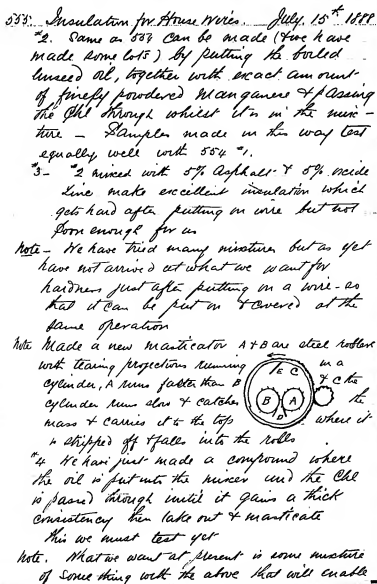 555. Insulation for House Wires. July. 15th 1888
#2. Same as 554 can be made (& we have
made some lots) by putting the boiled
linseed oil, together with exact amount
of finely powdered manganese & passing
the Chl through whilst it is in the mix-
ture — Samples made in this way test
equally well with 554 #1.
#3 - #2 mixed with 5% Asphalt & 5% oxide
Zinc make excellent insulation which
gets hard after putting on wire but not
soon enough for us
Note - We have tried many mixtures but as yet
have not arrived at what we want for
hardness just after putting on a wire - so
that it can be put on & covered at the
same operation
Note Made a new masticator A & B are steel rollers
with tearing projections running in a
cylinder, A runs faster than B & C the
cylinder runs slow & catches the
mass & carries it to the top where it
is stripped off & falls into the rolls
E C
B A
D
#4 We have just made a compound where
the oil is put into the mixer and the Chl
is passed through until it gains a thick
consistency then take out & masticate
this we must test yet
Note. What we want at present is some mixture
of something with the above that will enable